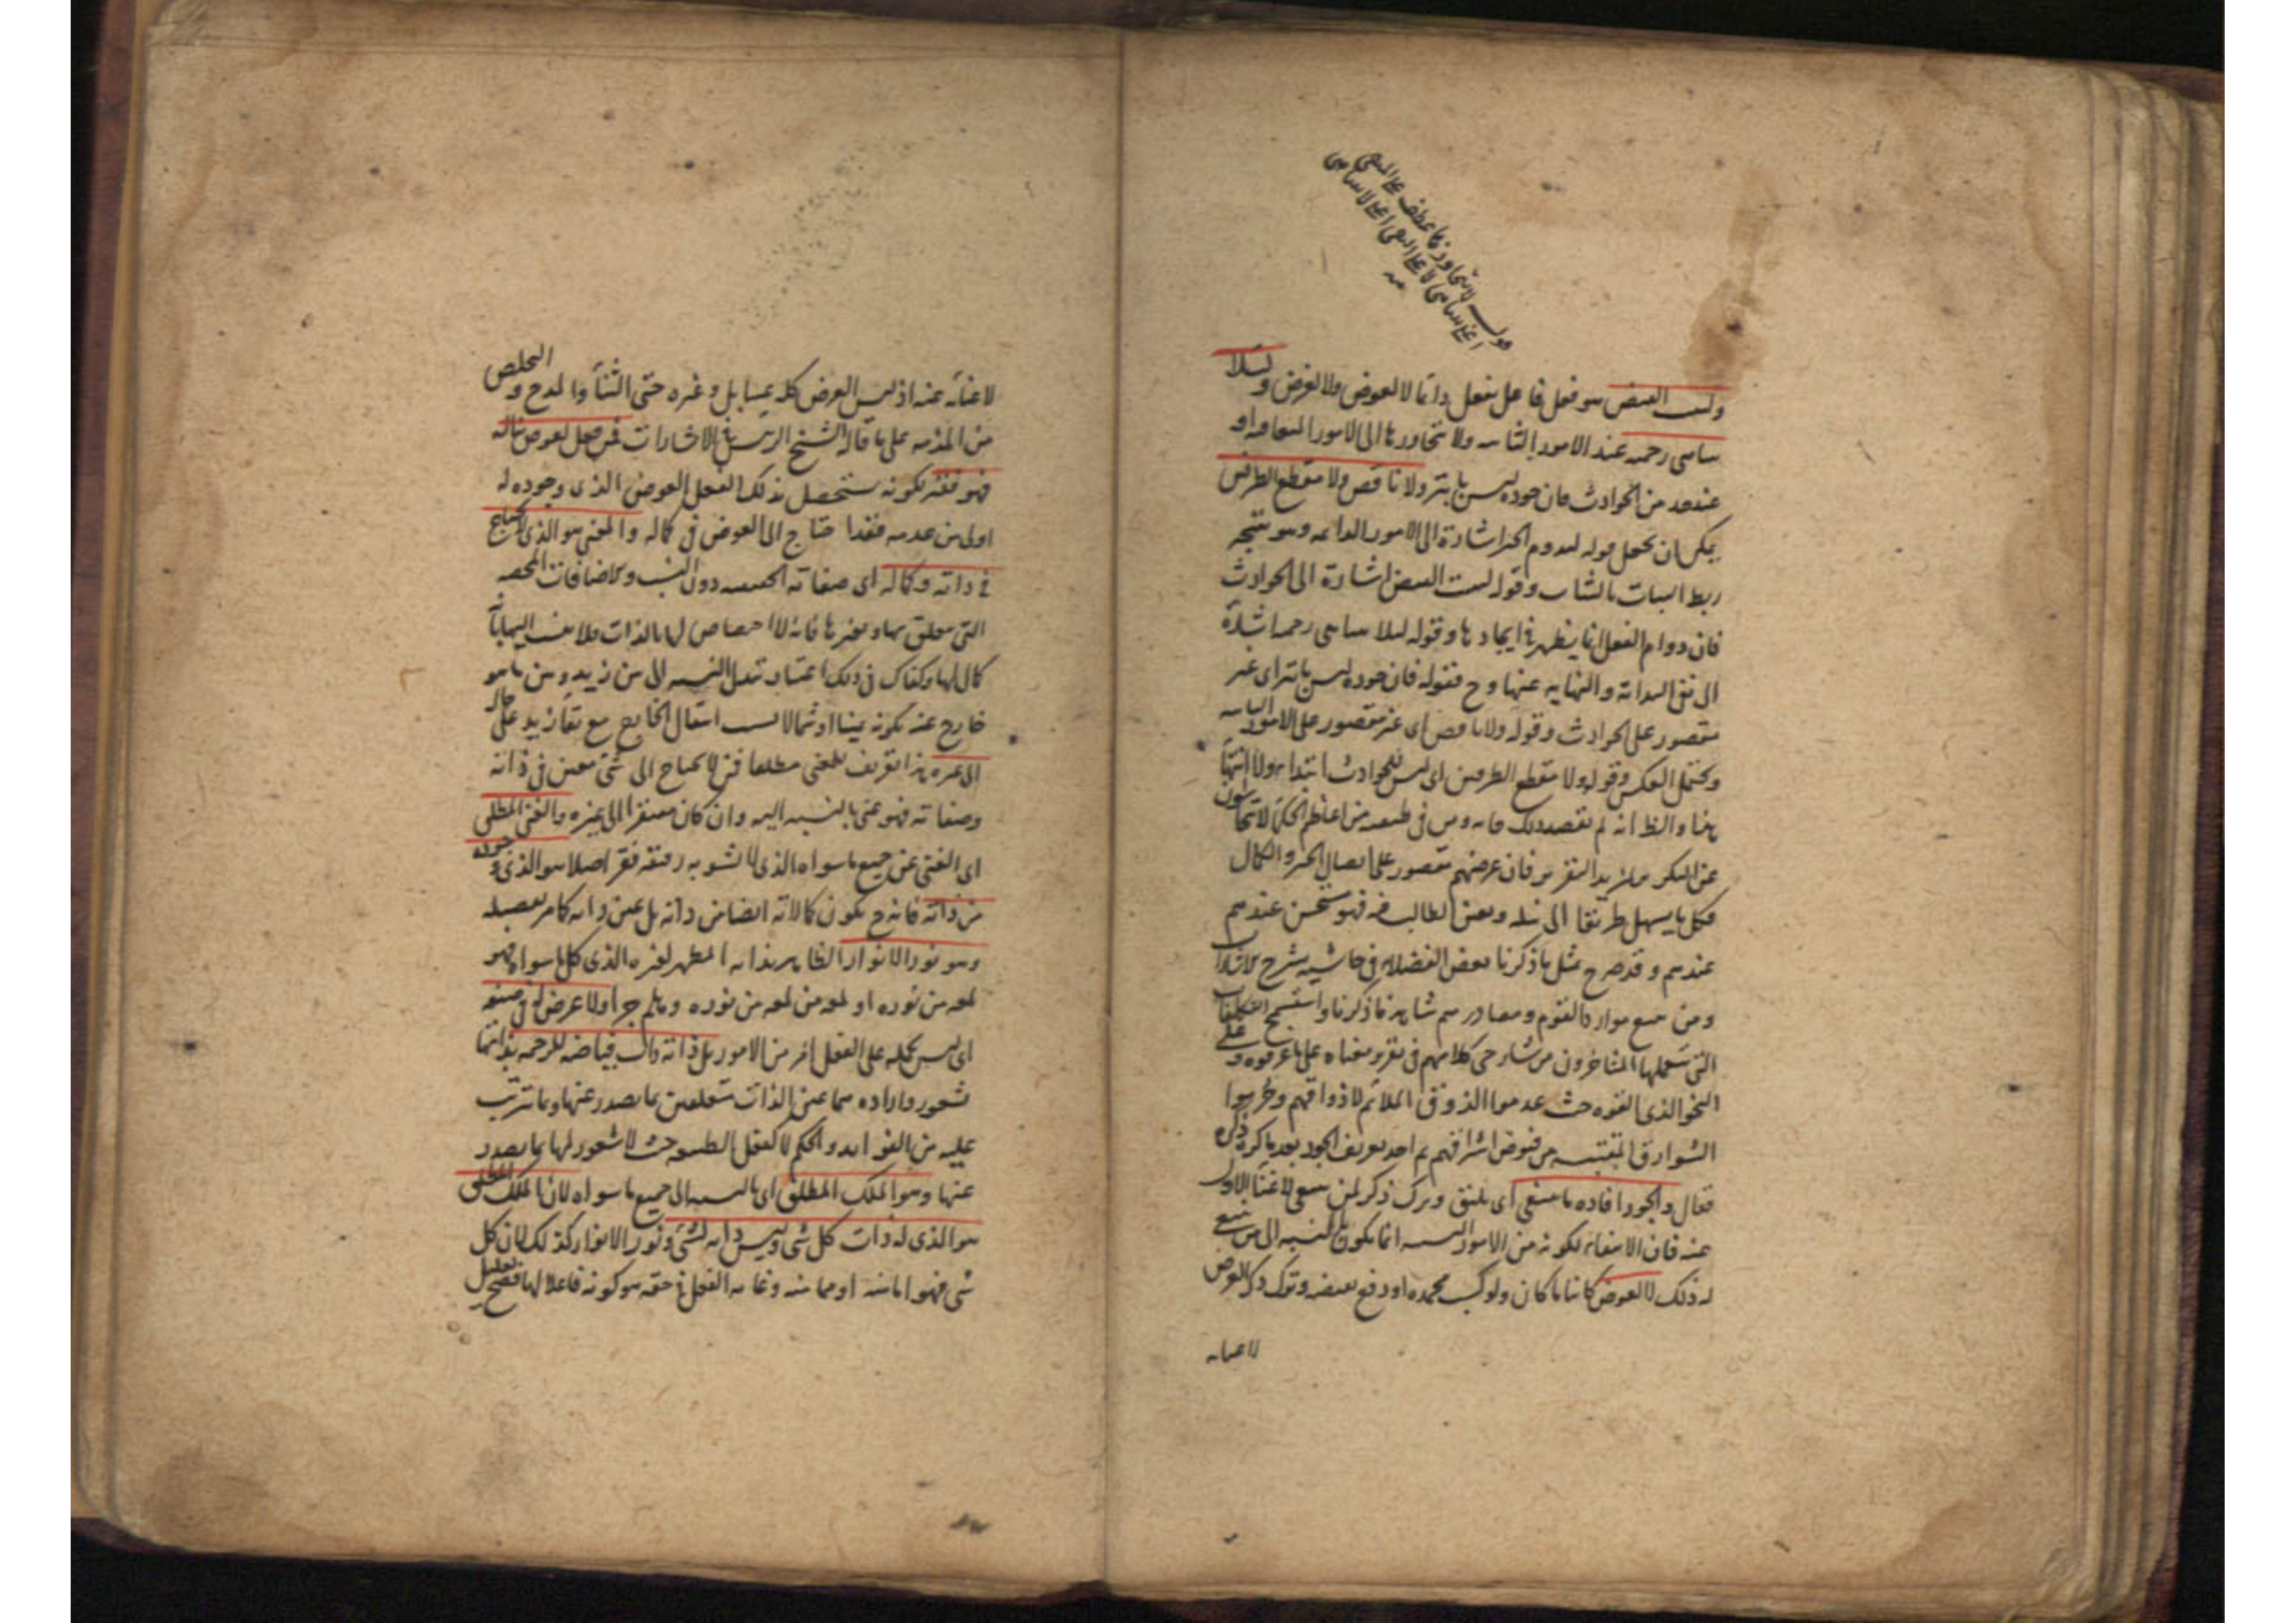 وليثبت الفيض هو فعل فاعل يفعل دائما لا لعوض ولا لغرض ولئلا
رحمته عند الامور الثابته ولا تتجاوزها الى الامور المتعاقبة او
عند حد من الحوادث فان جوده ليس بابتر ولا ناقص ولا منقطع الطرفين
يمكن ان يحمل قوله ليدوم الخير اشارة الى الامور الدائمه وهو نتيجة
ربط الثبات بالثابت وقوله ليثبت الفيض اشارة الى الحوادث
فان دوام الفعل انما يظهر في ايجادها وقوله لئلا رحمته اشارة
الى نفى البداية والنهايه عنها وح فقوله فان جوده ليس بابتر اى غير
مقصور على الحوادث وقوله ولا ناقص اى غير مقصور على الامور الثابته
ويحتمل العكس وقوله ولا منقطع الطرفين اى ليس للحوادث ابتداء ولا انتهاء
هذا والظ انه لم يقصد ذلك فانه ومن في طبقته من اعاظم الحكماء لا يتحاشون
عن التكرير لمزيد التقرير فان غرضهم مقصور على ايصال الخير والكمال
فكل ما يسهل طريقا الى نيله ويعين الطالب فهو مستحسن عندهم
عندهم وقد صرح بمثل ما ذكرنا بعض الفضلاء في حاشية شرح الاشارات
ومن تتبع موارد القوم ومصادرهم شاهد ما ذكرنا واستقبح التكلفات
التى المتاخرون من شارحى كلامهم في تقرير معناه على ما عرفوه وعلى
النحو الذى الفوه حيث عدموا الذوق الملائم لاذواقهم وحرموا
الشوارق المقتبسه من فيوض اشراقهم ثم اخذ تعريف الجود بعد ما كرر ذكره
فقال والجود افادة ما ينبغى اى يليق وترك ذكر لمن ينبغى لاغناء الاول
عنه فان الافادة لكونه من الامور النسبيه انما يكون بالنسبة الى من ينبغى
له ذلك لا لعوض كائنا ما كان ولو كسب محمدة او دفع وترك ذكر الغرض
لاغنائه
لاغنائه عنه اذ ليس العوض كله عينا بل وغيره حتى الثناء والمدح والتخلص
من المذمه على ما قاله الشيخ الرئيس في الاشارات فمن فعل لعوض ناله
فهو فقير لكونه يستحصل بذلك الفعل العوض الذى وجوده له
اولى من عدمه فقد احتاج الى العوض في كماله والغنى هو الذى لا يحتاج
في ذاته وكماله اى صفاته الحقيقيه دون النسب والاضافات المحضه
التى بها وبغيرها فانه لا اختصاص لها بالذات
كمال لها وكفاك في ذلك اعتبار تبدل النسبه الى من زيد ومن ما هو
خارج عنه بكونه يمينا او شمالا بسبب انتقال الخارج مع بقاء زيد على حاله
الى غيره هذا تعريف للغنى مطلقا فمن لا يحتاج الى شئ معين في ذاته
وصفاته فهو غنى بالنسبه اليه وان كان مفتقرا الى غيره والغنى المطلق
اى الغنى عن جميع ما سواه الذى لا يشوبه فقر اصلا هو الذى وجوده
من ذاته فانه ح يكون كمالاته ايضا من ذاته بل عين ذاته كما مر تفصيله
وهو نور الانوار الظاهر بذاته المظهر لغيره الذى كل ما سواه فهو
لمعه من نوره او لمعه من لمعه من نوره وهلم جرا ولا غرض له في صنعه
اى ليس يحمله على الفعل امر من الامور بل ذاته ذات فياضه للرحمه بذاتها
بشعور واراده هما عين الذات متعلقين بما يصدر عنها وبما يترتب
عليه من الفوائد والحكم لا كفعل الطبيعه حيث لا شعور لها بما يصدر
عنها وهو الملك المطلق اى بالنسبه الى جميع ما سواه لان الملك المطلق
هو الذى له ذات كل شى وليس ذاته لشئ ونور الانوار كذلك لان كل
شى فهو اما منه او مما منه وغايه الفعل في حقه هو كونه فاعلا لها فصح تعليل